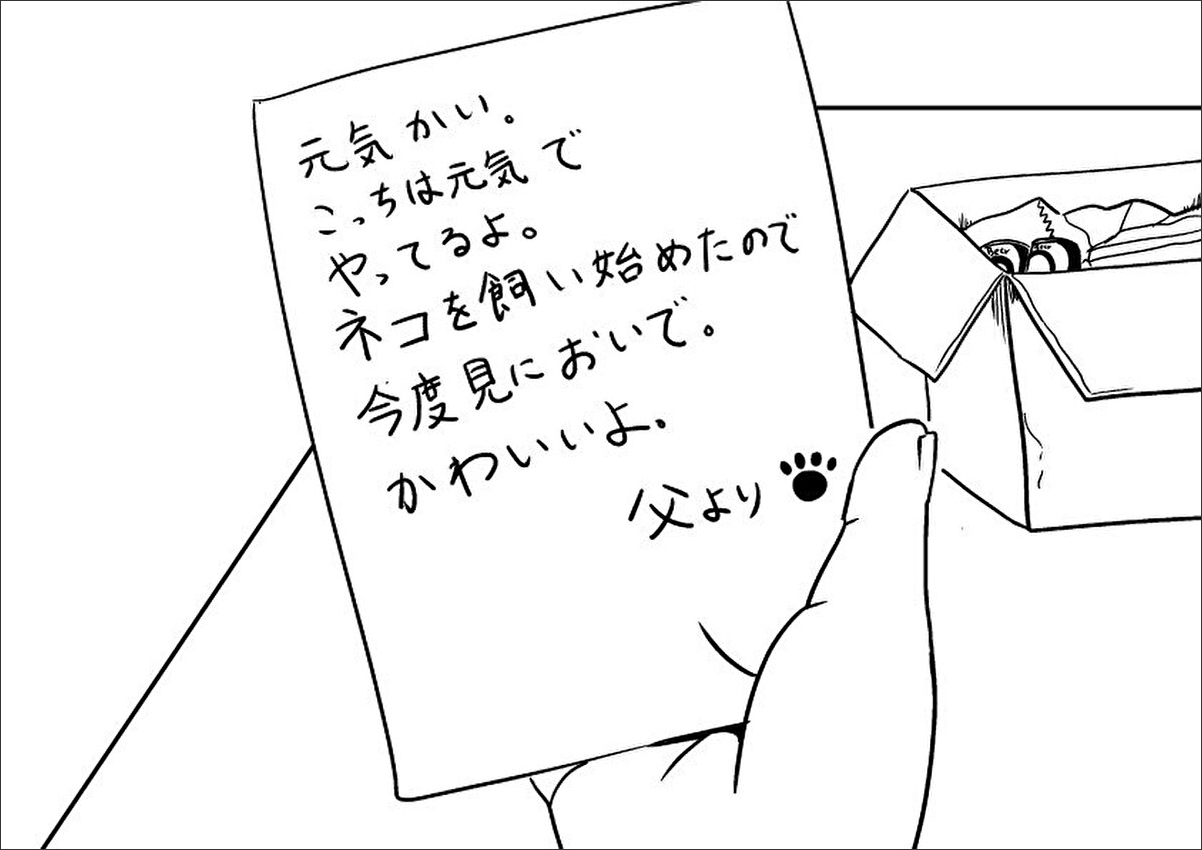 元気かい。
こっちは元気で
やってるよ。
ネコを飼い始めたので
今度見においで。
かわいいよ。
父より
Beer
Beer